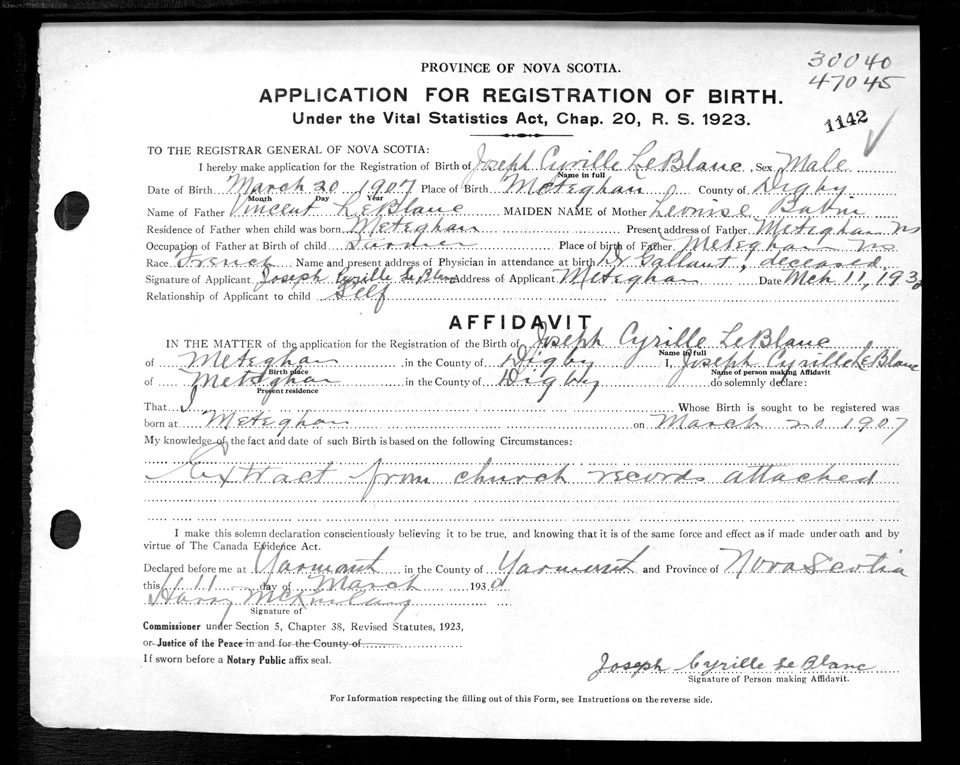 30040
47045
1142
PROVINCE OF NOVA SCOTIA.
APPLICATION FOR REGISTRATION OF BIRTH.
Under the Vital Statistics Act, Chap. 20, R. S. 1923.
TO THE REGISTRAR GENERAL OF NOVA SCOTIA:
I hereby make application for the Registration of Birth of Joseph Cyrille LeBlanc, Sex Male
Name in full
Date of Birth March 20 1907 Place of Birth Meteghan County of Digby
Month Day Year
Name of Father Vincent LeBlanc MAIDEN NAME of Mother Leonise Babin
Residence of Father when child was born Meteghan Present address of Father Meteghan NS
Occupation of Father at Birth of child Farmer Place of birth of Father Meteghan NS
Race French Name and present address of Physician in attendance at birth Dr Gallant, deceased
Signature of Applicant Joseph Cyrille Le Blanc Address of Applicant Meteghan Date Mch 11, 1930
Relationship of Applicant to child Self
AFFIDAVIT
IN THE MATTER of the application for the Registration of the Birth of Joseph Cyrille LeBlanc
Name in full
of Meteghan in the County of Digby I, Joseph Cyrille Le Blanc
Birth place Name of person making Affidavit
of Meteghan in the County of Digby do solemnly declare:
Present residence
That I Whose Birth is sought to be registered was
born at Meteghan on March 20 1907
My knowledge of the fact and date of such Birth is based on the following Circumstances:
Extract from church records attached
I make this solemn declaration conscientiously believing it to be true, and knowing that it is of the same force and effect as if made under oath and by
virtue of The Canada Evidence Act.
Declared before me at Yarmouth in the County of Yarmouth and Province of Nova Scotia
this 11 day of March 1930
Harry
Signature of
Commissioner under Section 5, Chapter 38, Revised Statutes, 1923,
or Justice of the Peace in and for the County of
If sworn before a Notary Public affix seal.
Joseph Cyrille Le Blanc
Signature of Person making Affidavit.
For Information respecting the filling out of this Form, see Instructions on the reverse side.